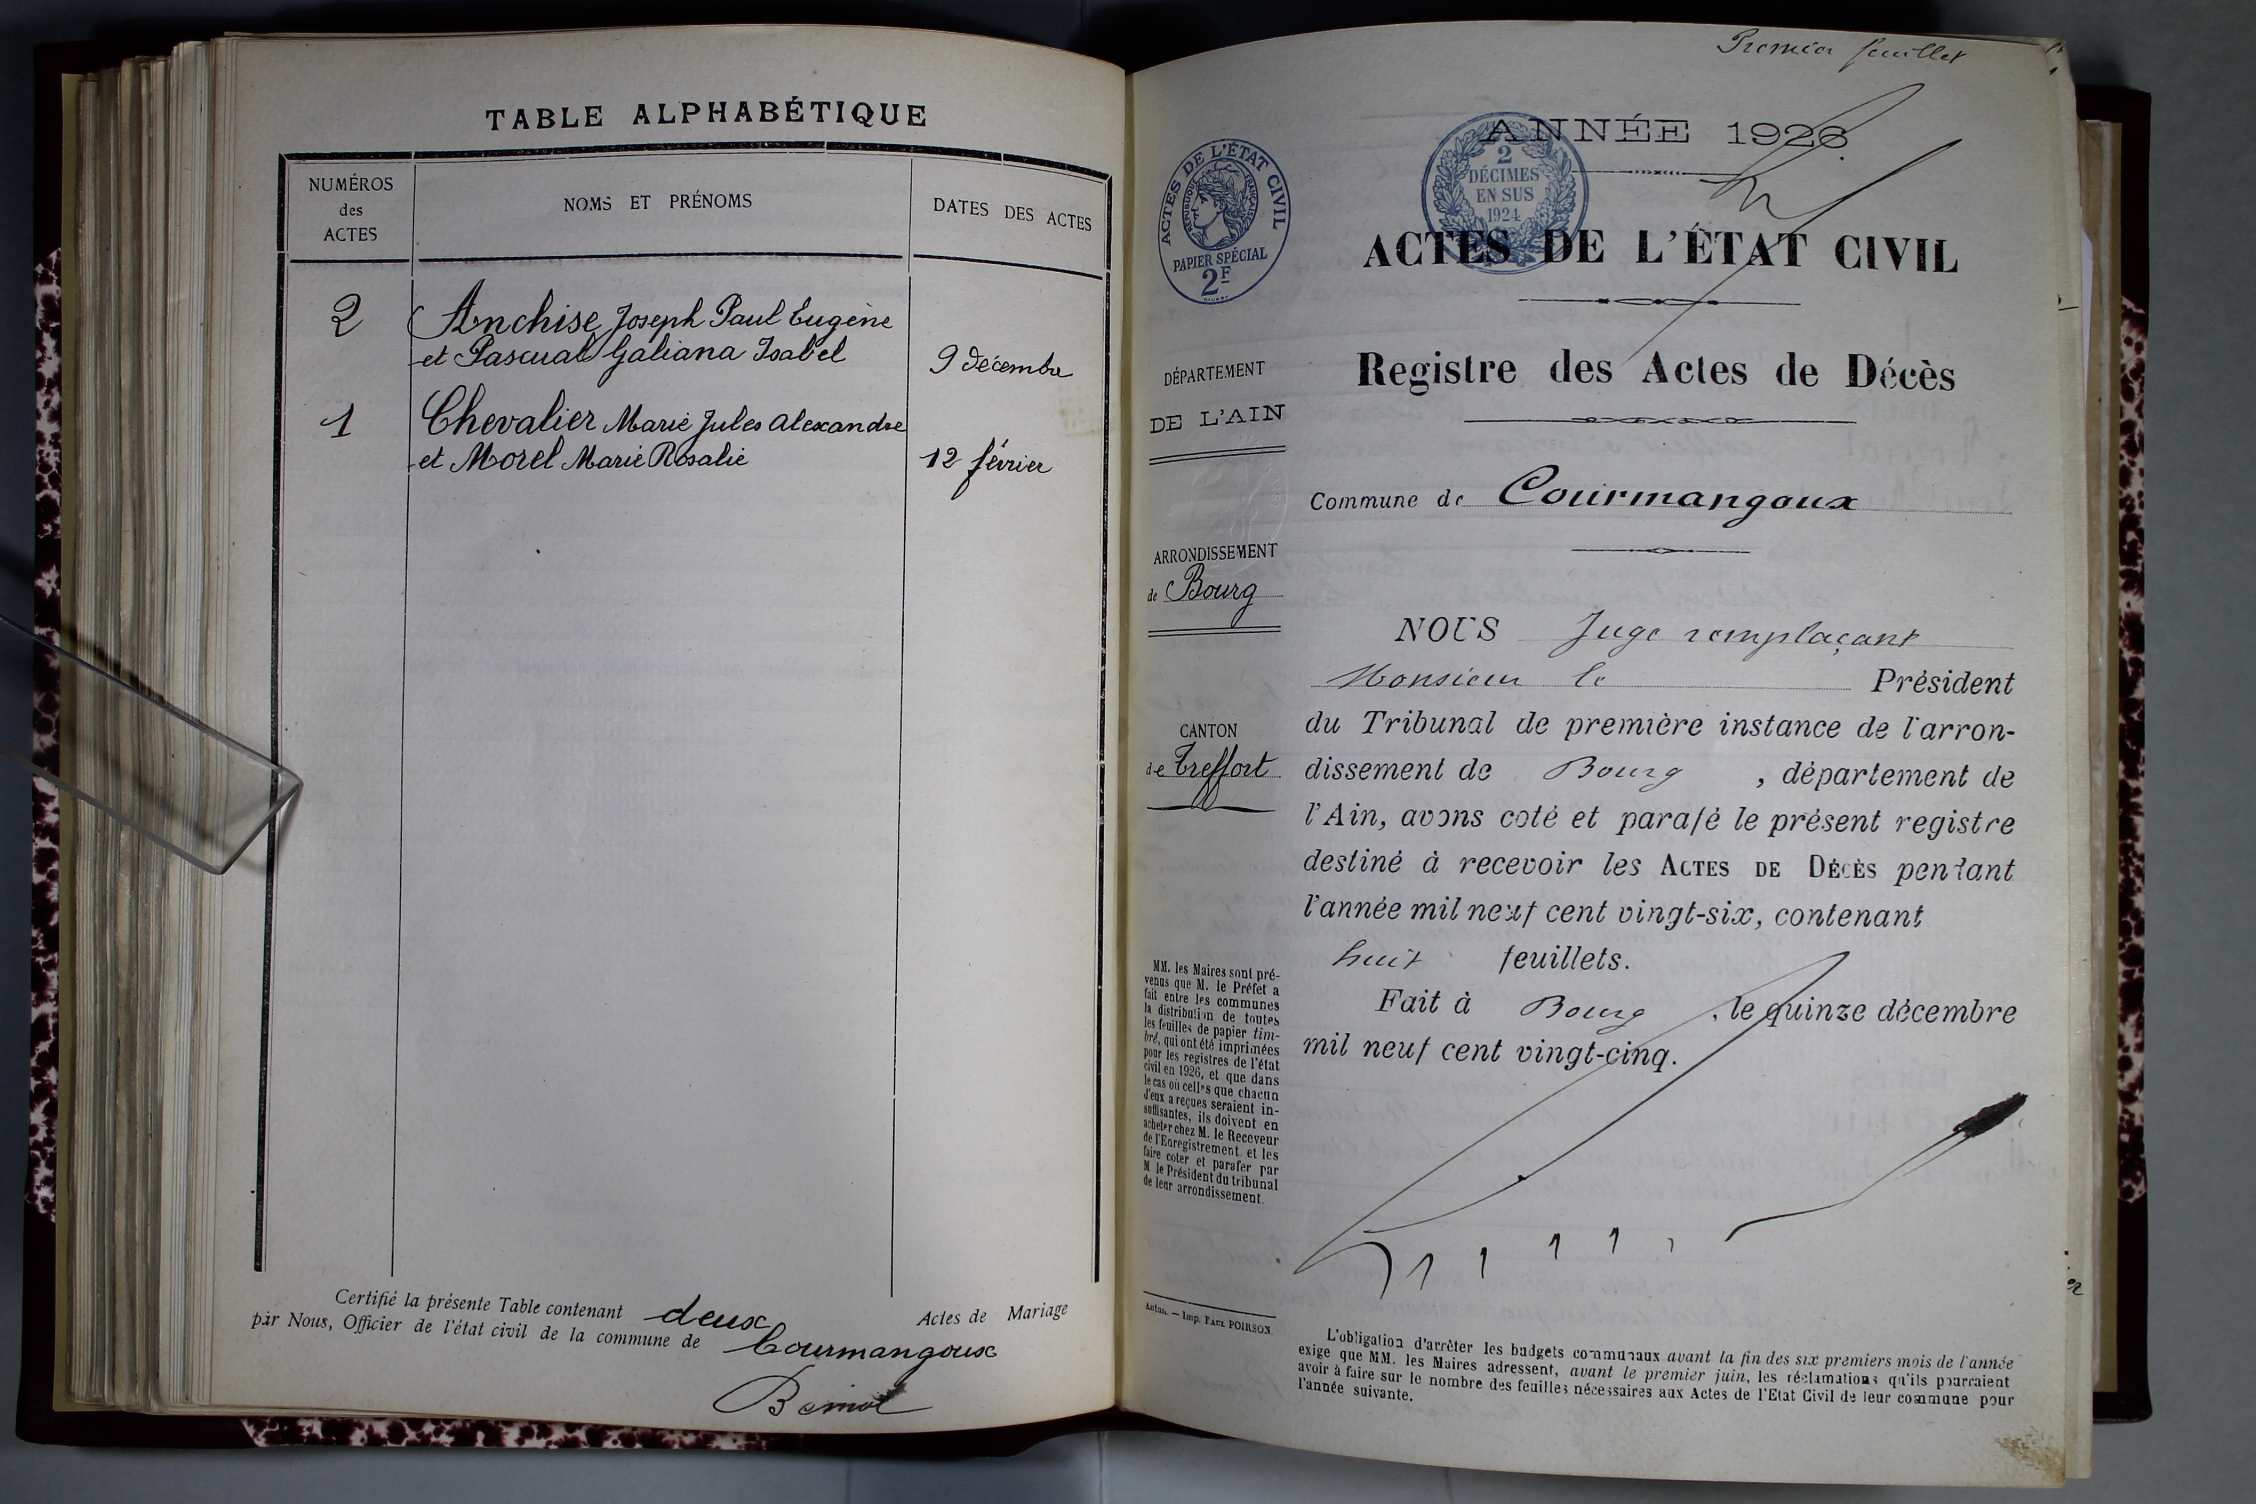 TABLE ALPHABÉTIQUE
NUMÉROS
des
ACTES
NOMS ET PRÉNOMS
DATES DES ACTES
2
Anchise Joseph Paul Eugène
et Pascual Galiana Isabel
9 décembre
1
Chevalier Marie Jules Alexandre
et Morel Marie Rosalie
12 février
Certifié la présente Table contenant deux Actes de Mariage
par Nous, Officier de l'état civil de la commune de Courmangoux
Premier feuillet
ANNÉE 1926
ACTES DE L'ÉTAT CIVIL
RÉPUBLIQUE FRANÇAISE
PAPIER SPÉCIAL
2F
2
DÉCIMES
EN SUS
1924
ACTES DE L'ÉTAT CIVIL
Registre des Actes de Décès
DÉPARTEMENT
DE L'AIN
ARRONDISSEMENT
de Bourg
CANTON
de Treffort
MM. les Maires sont pré-
venus que M. le Préfet a
fait entre les communes
la distribution de toutes
les feuilles de papier tim-
bré, qui ont été imprimées
pour les registres de l'état
civil en 1926, et que dans
le cas où celles que chacun
d'eux a reçues seraient in-
suffisantes, ils doivent en
acheter chez M. le Receveur
de l'Enregistrement et les
faire coter et parafer par
M. le Président du tribunal
de leur arrondissement.
Autun. — Imp. PAUL POIRSON.
Commune de Courmangoux
NOUS Juge remplaçant
Monsieur le Président
du Tribunal de première instance de l'arron-
dissement de Bourg, département de
l'Ain, avons coté et parafé le présent registre
destiné à recevoir les ACTES DE DÉCÈS pendant
l'année mil neuf cent vingt-six, contenant
huit feuillets.
Fait à Bourg, le quinze décembre
mil neuf cent vingt-cinq.
L'obligation d'arrêter les budgets communaux avant la fin des six premiers mois de l'année
exige que MM. les Maires adressent, avant le premier juin, les réclamations qu'ils pourraient
avoir à faire sur le nombre des feuilles nécessaires aux Actes de l'Etat Civil de leur commune pour
l'année suivante.